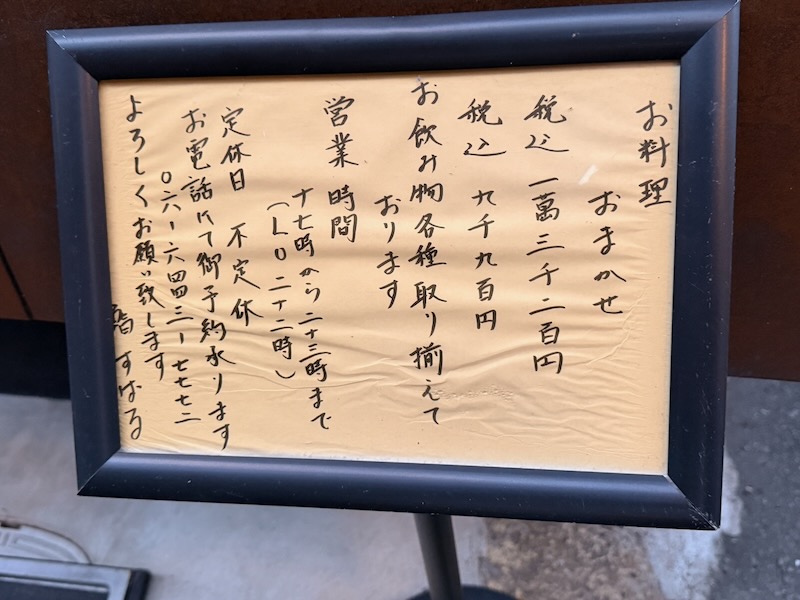 お料理
おまかせ
税込 一萬三千二百円
税込 九千九百円
お飲み物各種取り揃えて
おります
営業時間
十七時から二十三時まで
（LO 二十二時）
定休日 不定休
お電話にて御予約承ります
〇六-六四四三-七七七二
よろしくお願い致します
すばる